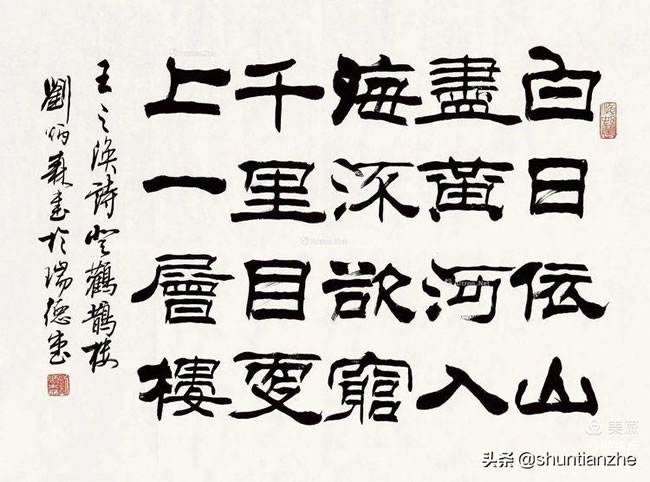 白日依山
盡黃河入
海流欲窮
千里目更
上一層樓
王之渙詩登鸛鵲樓
劉炳森書於瑞德
美篇
头条 @shuntianzhe